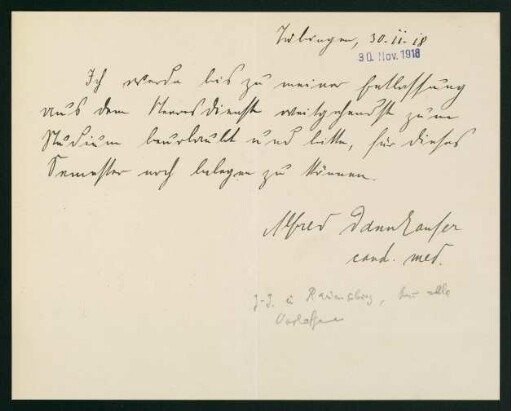 Tübingen, 30. 11. 18
30. Nov. 1918
Ich werde bis zu meiner Entlassung
aus dem Heeresdienste weitgehendst zum
Studium beurlaubt und bitte, für dieses
Semester noch belegen zu können.
Alfred Dannhauser
cand. med.